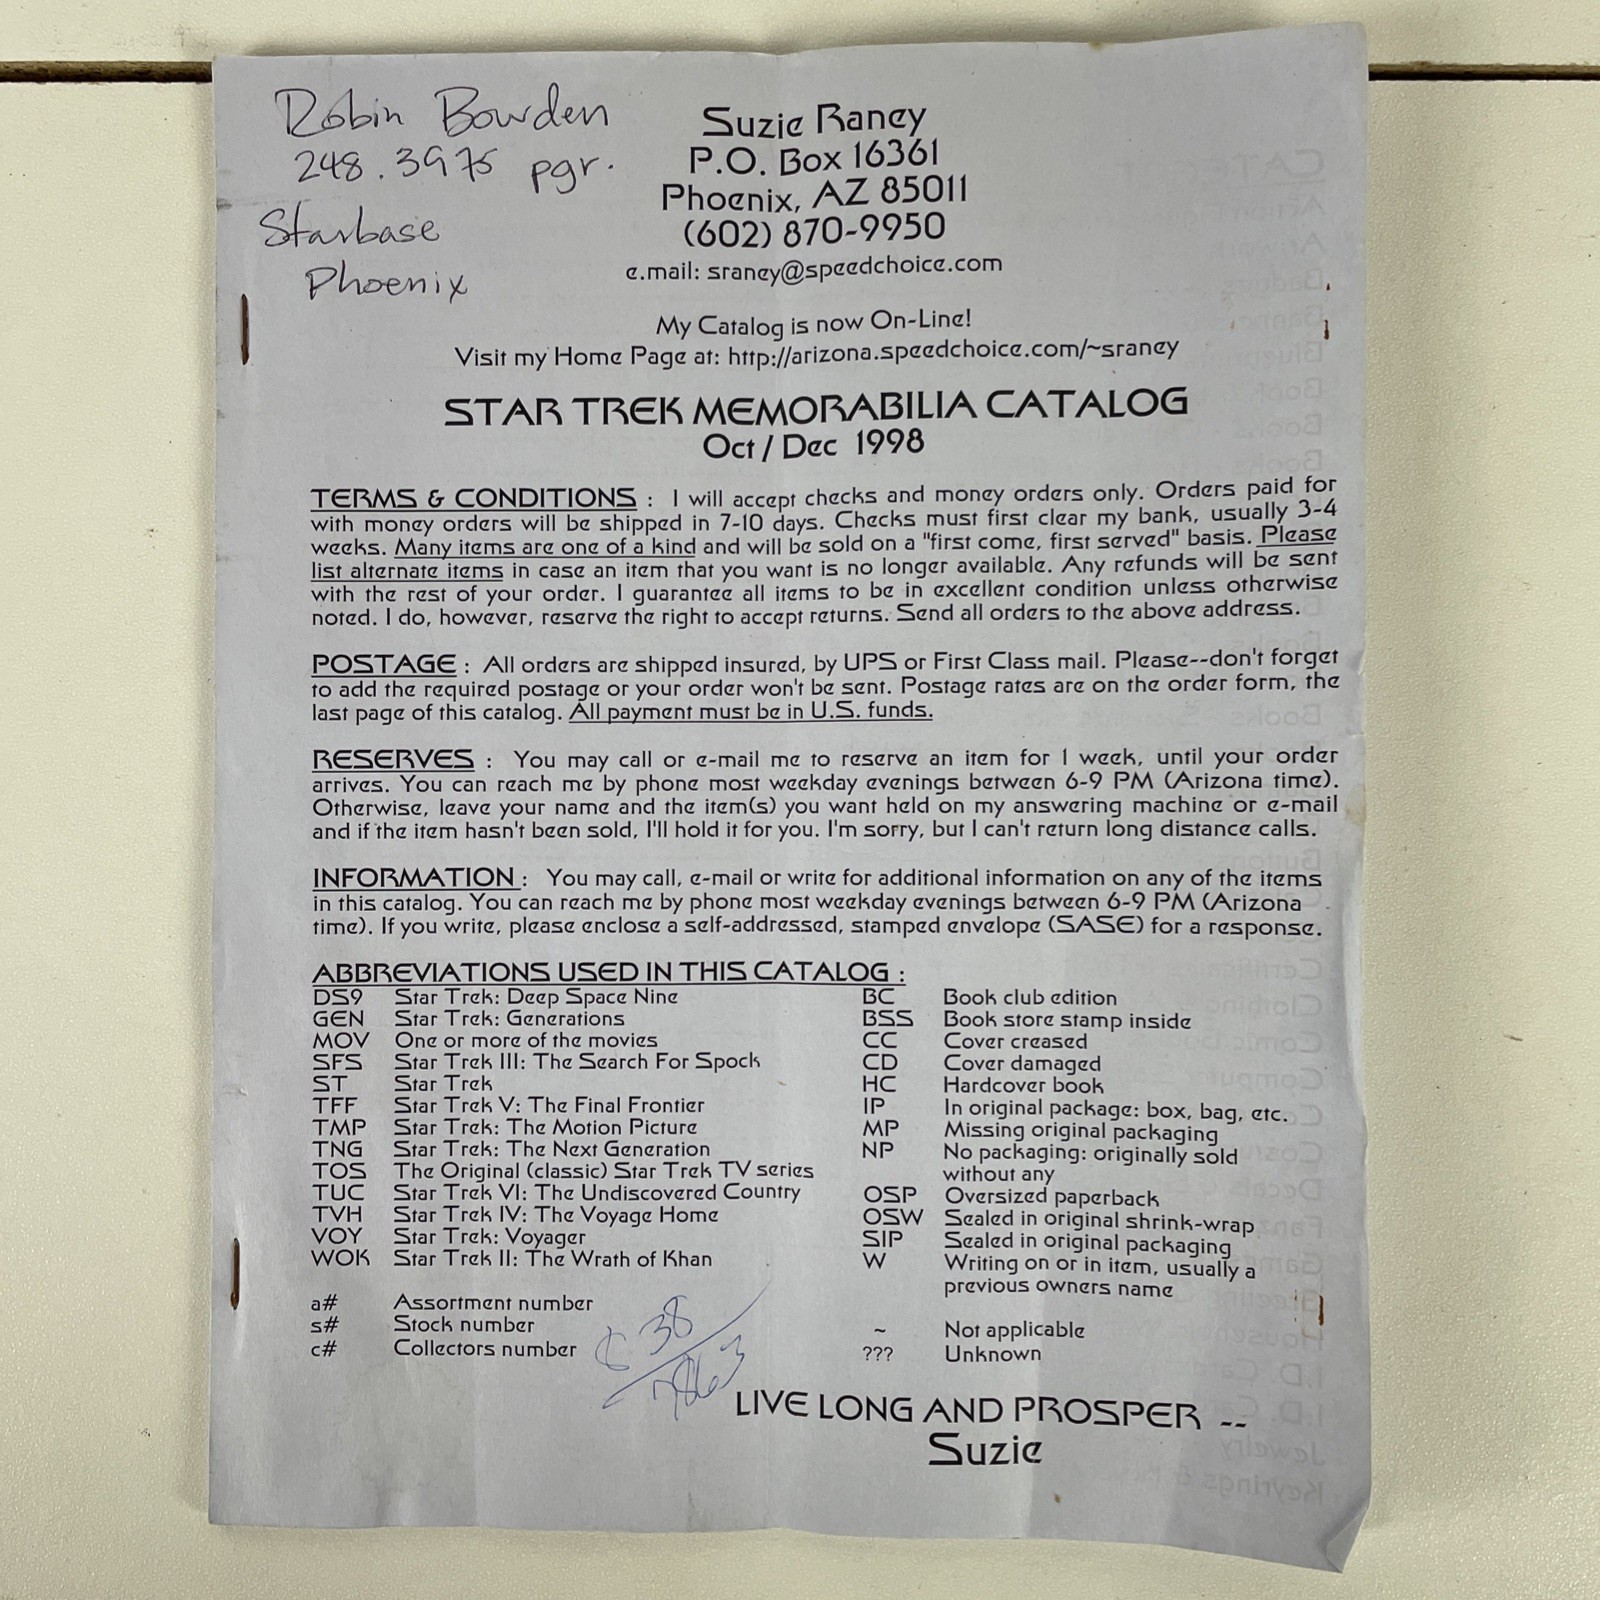 Robin Bowden
248.3975 pgr.
Starbase
Phoenix
Suzie Raney
P.O. Box 16361
Phoenix, AZ 85011
(602) 870-9950
e.mail: sraney@speedchoice.com
My Catalog is now On-Line!
Visit my Home Page at: http://arizona.speedchoice.com/~sraney
STAR TREK MEMORABILIA CATALOG
Oct / Dec 1998
TERMS & CONDITIONS : I will accept checks and money orders only. Orders paid for
with money orders will be shipped in 7-10 days. Checks must first clear my bank, usually 3-4
weeks. Many items are one of a kind and will be sold on a "first come, first served" basis. Please
list alternate items in case an item that you want is no longer available. Any refunds will be sent
with the rest of your order. I guarantee all items to be in excellent condition unless otherwise
noted. I do, however, reserve the right to accept returns. Send all orders to the above address.
POSTAGE : All orders are shipped insured, by UPS or First Class mail. Please--don't forget
to add the required postage or your order won't be sent. Postage rates are on the order form, the
last page of this catalog. All payment must be in U.S. funds.
RESERVES : You may call or e-mail me to reserve an item for 1 week, until your order
arrives. You can reach me by phone most weekday evenings between 6-9 PM (Arizona time).
Otherwise, leave your name and the item(s) you want held on my answering machine or e-mail
and if the item hasn't been sold, I'll hold it for you. I'm sorry, but I can't return long distance calls.
INFORMATION : You may call, e-mail or write for additional information on any of the items
in this catalog. You can reach me by phone most weekday evenings between 6-9 PM (Arizona
time). If you write, please enclose a self-addressed, stamped envelope (SASE) for a response.
ABBREVIATIONS USED IN THIS CATALOG :
DS9 Star Trek: Deep Space Nine
GEN Star Trek: Generations
MOV One or more of the movies
SFS Star Trek III: The Search For Spock
ST Star Trek
TFF Star Trek V: The Final Frontier
TMP Star Trek: The Motion Picture
TNG Star Trek: The Next Generation
TOS The Original (classic) Star Trek TV series
TUC Star Trek VI: The Undiscovered Country
TVH Star Trek IV: The Voyage Home
VOY Star Trek: Voyager
WOK Star Trek II: The Wrath of Khan
a# Assortment number
s# Stock number
c# Collectors number
BC Book club edition
BSS Book store stamp inside
CC Cover creased
CD Cover damaged
HC Hardcover book
IP In original package: box, bag, etc.
MP Missing original packaging
NP No packaging: originally sold
without any
OSP Oversized paperback
OSW Sealed in original shrink-wrap
SIP Sealed in original packaging
W Writing on or in item, usually a
previous owners name
~ Not applicable
??? Unknown
38
LIVE LONG AND PROSPER --
Suzie